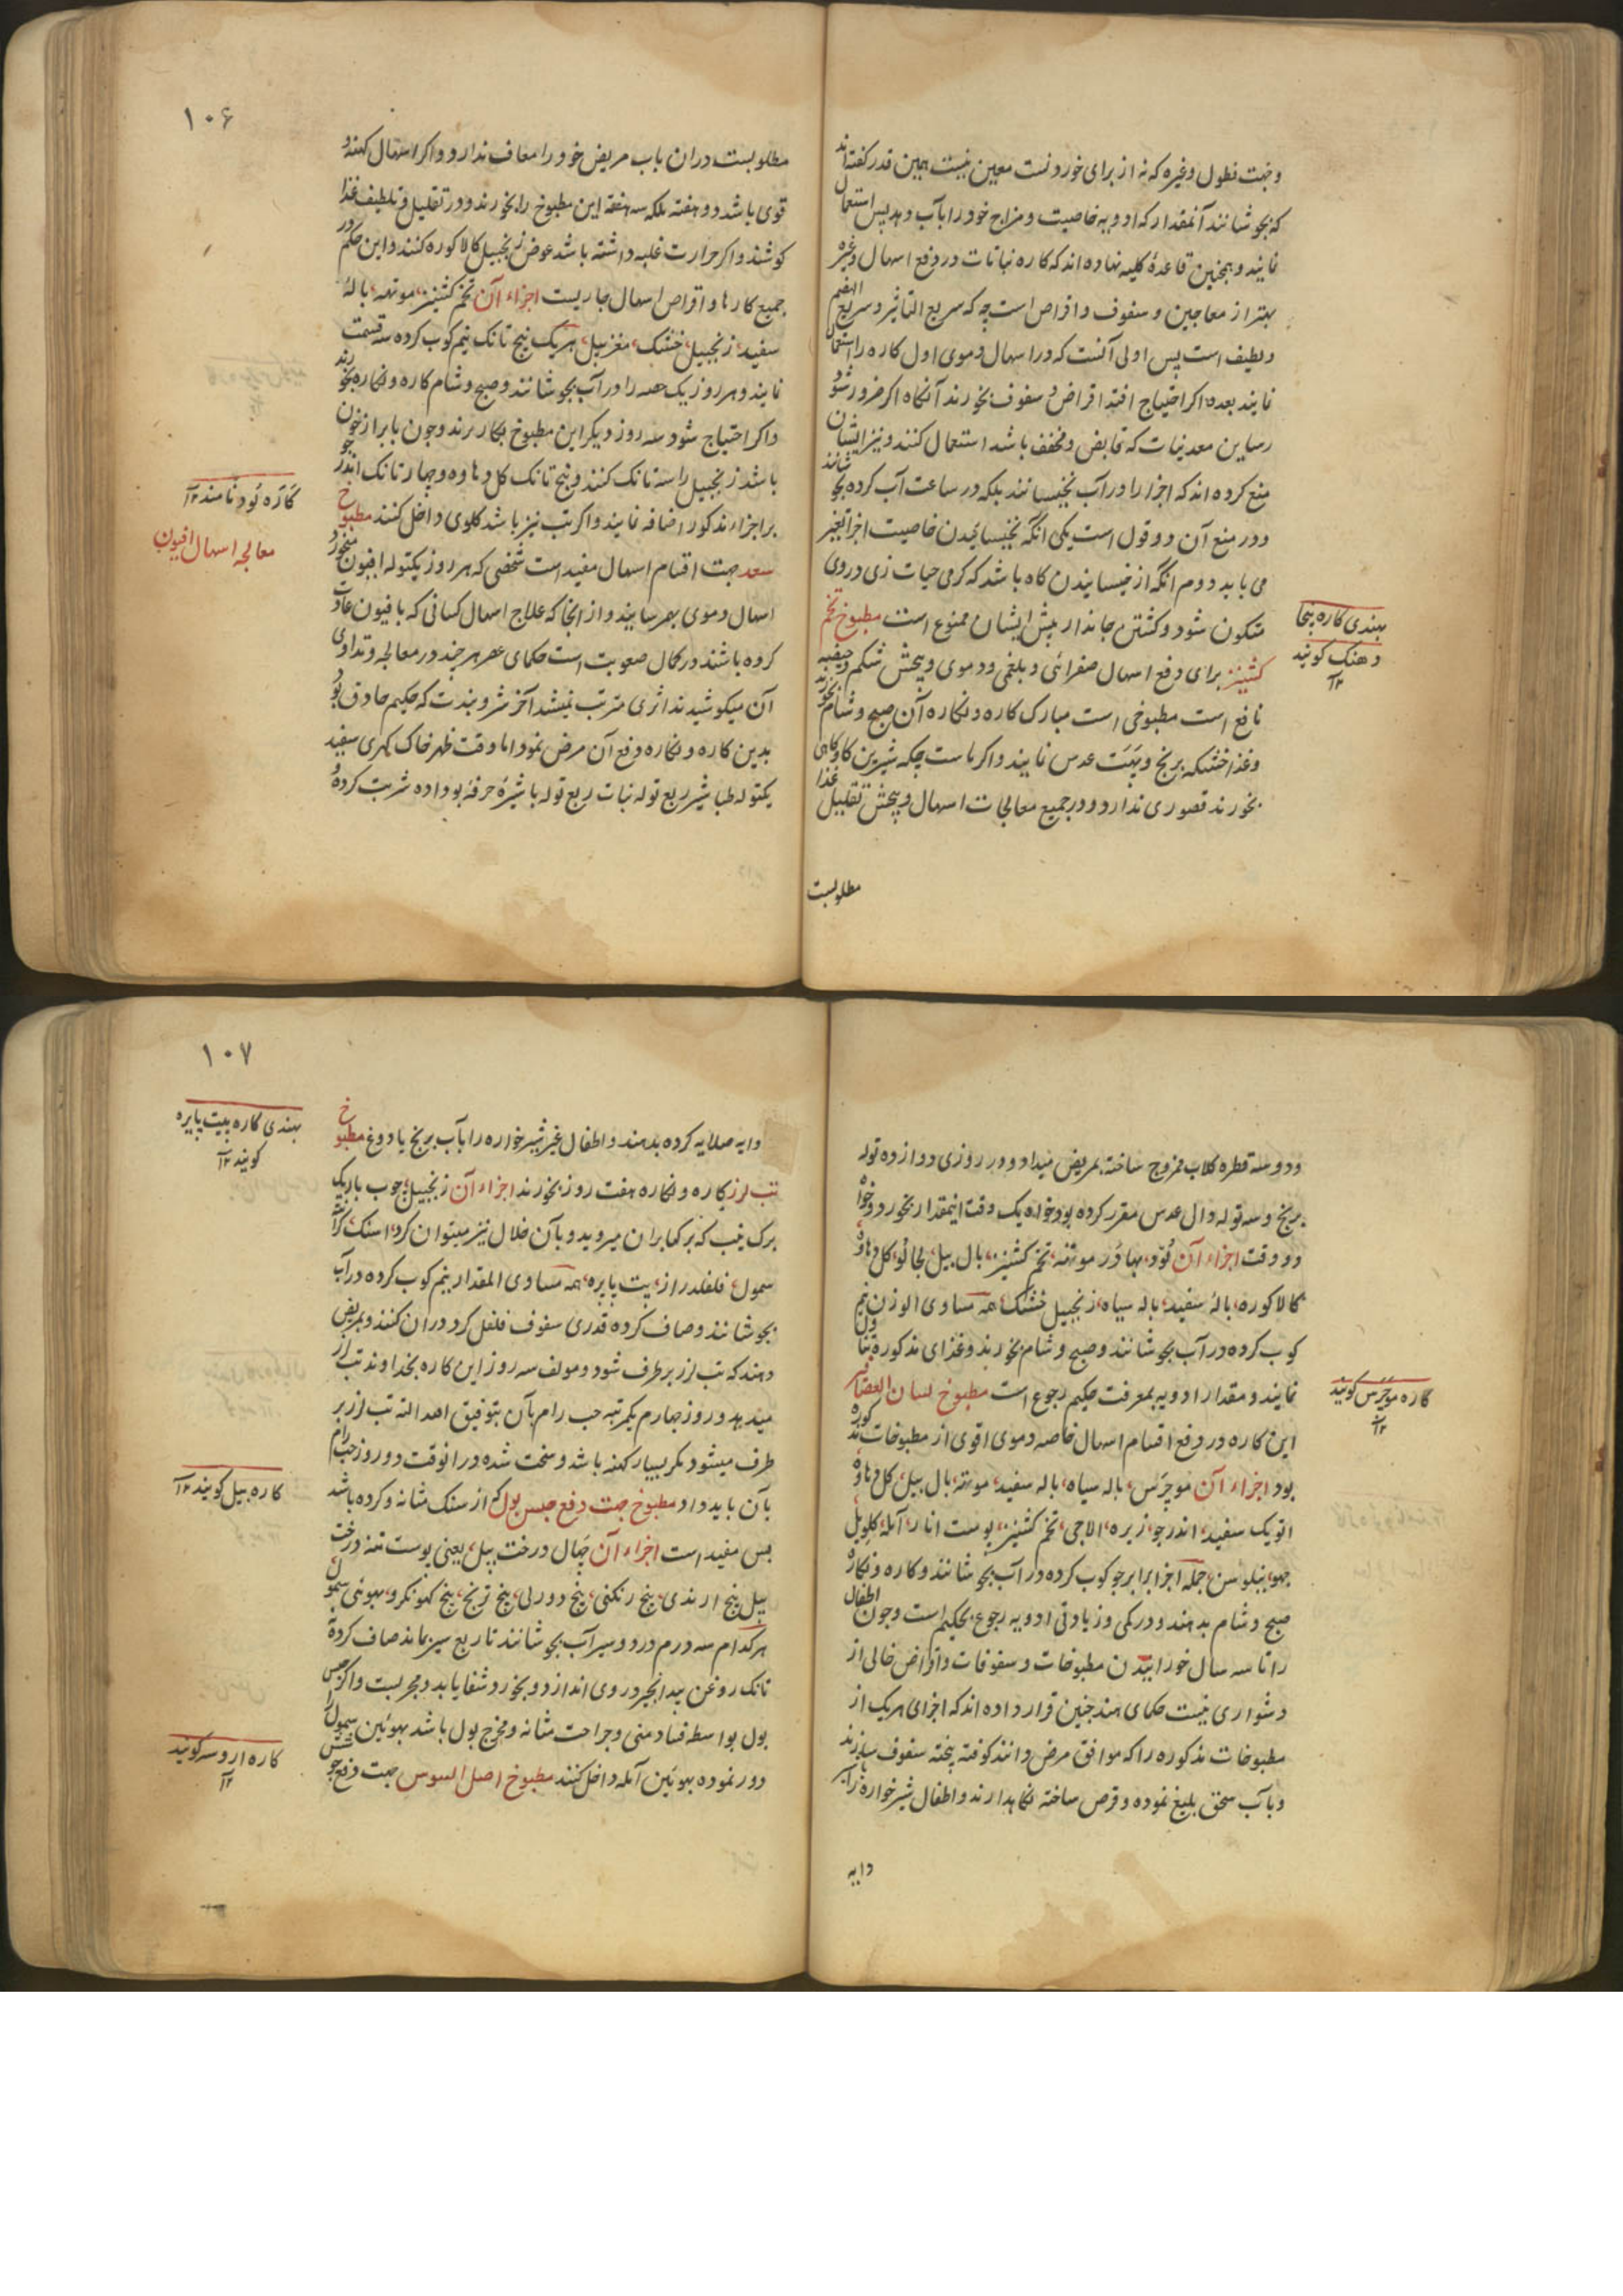 وجهت نطول وغیره که نه از برای خوردنست معین نیست همین قدر گفته‌اند
که بجوشانند آنمقدار که ادویه خاصیت و مزاج خود را بآب دهد پس استعمال
نمایند و همچنین قاعدهٔ کلیه نهاده‌اند که کاره نباتات در دفع اسهال وغیره
بهتر از معاجین و سفوف و اقراص است چه که سریع التاثیر و سریع الهضم
و لطیف است پس اولی آنست که در اسهال دموی اول کاره را استعمال
نمایند بعده اگر احتیاج افتد اقراض و سفوف بخورند آنگاه اگر ضرور شود
رساین معدنیات که قابض و مخفف باشد استعمال کنند و نیز ایشان
منع کرده‌اند که اجزا را در آب نخیسانند بلکه در ساعت آب کرده بجوشانند
و در منع آن دو قول است یکی آنکه بخیسانیدن خاصیت اجزا تغیر
می یابد دوم آنکه از خیسانیدن گاه باشد که کرمی حیات زی در وی
متکون شود و کشتن جاندار پیش ایشان ممنوع است مطبوخ تخم
کشنیز برای دفع اسهال صفرائی و بلغمی و دموی و پیچش شکم
نافع است مطبوخی است مبارک کاره و نکاره آن صبح و شام بخورند
وغذا خشکه برنج و عدس نمایند و اگر ماست چکه شیرین گاو گاهی
بخورند قصوری ندارد و در جمیع معالجات اسهال و پیچش تقلیل غذا
مطلوبست
بهندی کاره پنجا
دهنک گویند
۱۲
۱۰۶
مطلوبست در ان باب مریض خود را معاف ندارد و اگر اسهال کهنه و
قوی باشد دو هفته بلکه سه هفته این مطبوخ را بخورند و در تقلیل و تلطیف غذا
کوشند و اگر حرارت غلبه داشته باشد عوض زنجبیل کالاکوره کنند و این حکم در
جمیع کارها و اقراص اسهال جاریست اجزاء آن تخم کشنیز، موتهه، بالهٔ
سفید، زنجبیل خشک، مغز بیل، هریک پنج تانک نیم کوب کرده سه قسمت
نمایند و هر روز یک حصه را در آب بجوشانند و صبح و شام کاره و نکاره بخورند
و اگر احتیاج شود سه روز دیگر این مطبوخ بکار برند و چون با براز خون
باشد زنجبیل را سه تانک کنند و پنج تانک گل دهاوه و چهار تانک اندرجو
بر اجزاء مذکور اضافه نمایند و اگر تب نیز باشد گلوی داخل کنند مطبوخ
سعد جهت اقسام اسهال مفید است شخصی که هر روز یکتوله افیون میخورد
اسهال دموی بهم رسانید و از آنجا که علاج اسهال کسانی که با فیون عادت
کرده باشند در کمال صعوبت است حکمای عصر هر چند در معالجه و تداوی
آن میکوشیدند اثری مترتب نمیشد آخر که حکیم حاذق بود
بدین کاره و نکاره دفع آن مرض نمود اما وقت ظهر خاک کهری سفید
یکتوله طباشیر ربع توله نبات ربع توله با شیرهٔ خرفه بو داده شربت کرده
کاره نود نامند ۱۲
معالجه اسهال افیون
و دو سه قطره گلاب ممزوج ساخته بمریض میداد و در روزی دوازده توله
برنج و سه توله دال عدس مقرر کرده بود خواه یک وقت اینمقدار بخورد و خواه
دو وقت اجزاء آن نود، بهادر موتهه، تخم کشنیز، بال بیل، لجالو، گل دهاوه
کالاکوره، بالهٔ سفید، باله سیاه، زنجبیل خشک، همه مساوی الوزن نیم
کوب کرده در آب بجوشانند و صبح و شام بخورند و غذای مذکوره تناول
نمایند و مقدار ادویه بمعرفت حکیم رجوع است مطبوخ لسان العصافیر
این کاره در دفع اقسام اسهال خاصه دموی اقوی از مطبوخات مذکوره
بود اجزاء آن موچرس، باله سیاه، باله سفید، موتهه، بال بیل، گل دهاوه
اتویک سفید، اندرجو، زیره، الاچی، تخم کشنیز، پوست انار، آمله،
جمله اجزا برابر جو کوب کرده در آب بجوشانند و کاره و نکاره
صبح و شام بدهند و در کمی و زیادتی ادویه رجوع بحکیم است و چون اطفال
را تا سه سال خورانیدن مطبوخات و سفوفات و اقراص خالی از
دشواری نیست حکمای هند چنین قرار داده‌اند که اجزای هریک از
مطبوخات مذکوره را که موافق مرض دانند کوفته پخته سفوف سازند
و بآب سحق بلیغ نموده و قرص ساخته نگاهدارند و اطفال شیرخواره را بشیر
دایه
کاره موچرس گویند
۱۲
۱۰۷
دایه صلایه کرده بدهند و اطفال غیر شیرخواره را بآب برنج یا دوغ مطبوخ
تب لرز کاره و نکاره هفت روز بخورند اجزاء آن زنجبیل، چوب باریک
برک نیب که برگها بران میروید و بآن خلال نیز میتوان کرد،
سمول، فلفلدراز، پیت پاپره، همه مساوی المقدار نیم کوب کرده در آب
بجوشانند و صاف کرده قدری سفوف فلفل گرد در آن کنند و بمریض
دهند که تب لرز برطرف شود و مولف سه روز این کاره بخداوند تب لرز
میدهد و روز چهارم یکمرتبه حب رام بآن بتوفیق اهدا لته تب لرز بر
طرف میشود مگر بسیار کهنه باشد و سخت شده در آنوقت دو روز حب رام
بآن باید داد مطبوخ جهت دفع حبس بول که از سنگ مثانه و گرده باشد
بس مفید است اجزاء آن چهال درخت بیل، یعنی پوست تنه درخت
بیل بیخ ارندی، بیخ رنگنی، بیخ دورلی، بیخ ترنج، بیخ گهوکرو، بهوئین سمول
هرکدام سه درم در دو سیر آب بجوشانند تا ربع سیر بماند صاف کرده
تانک روغن بیدانجیر در وی اندازد و بخورد شفا یابد و مجربست و اگر حبس
بول بواسطه فساد منی و جراحت مثانه و مخرج بول باشد بهوئین سمول را
دور نموده بهوئین آمله داخل کنند مطبوخ اصل السوس جهت دفع
بهندی کاره پیت پاپره
گویند ۱۲
کاره بیل گویند ۱۲
کاره اروسه گویند
۱۲